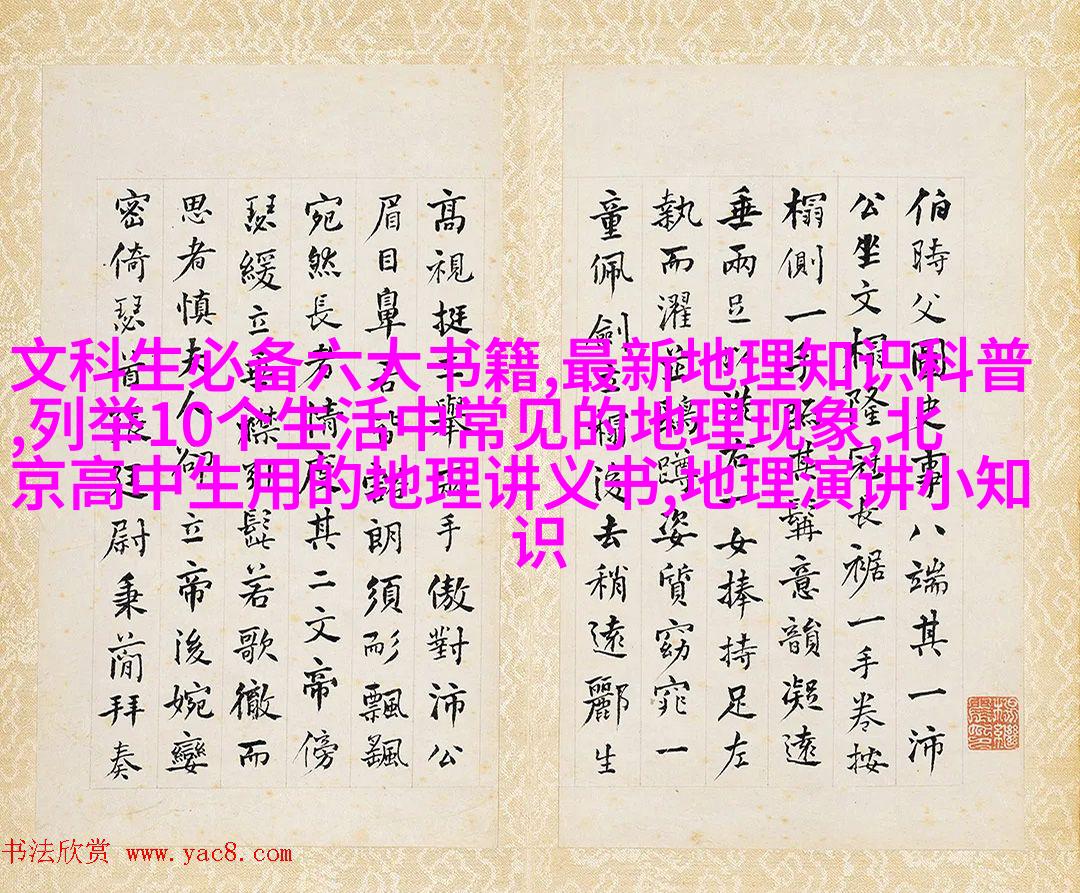 文科生必备六大书籍,最新地理知识科普
,列举10个生活中常见的地理现象,北
京高中生用的地理讲义书,地理演讲小知
识
伯時父圖史事八端其一沛
公坐文榻隆冠長裾一手卷按
榻側一手其髯意韻凝遠
垂兩足一女捧持足左
執而濯蹲姿質窈窕一
童佩劍立榻後去稍遠酈生
高視挺立舉手傲對沛公
眉目鼻若朗須飄飄
宛然長者情度其二文帝傍
瑟緩立髭若歌徹而
思者慎夫人卻立帝後婉孌
密倚瑟首廷尉秉簡拜奏
书法欣赏 www.yac8.com